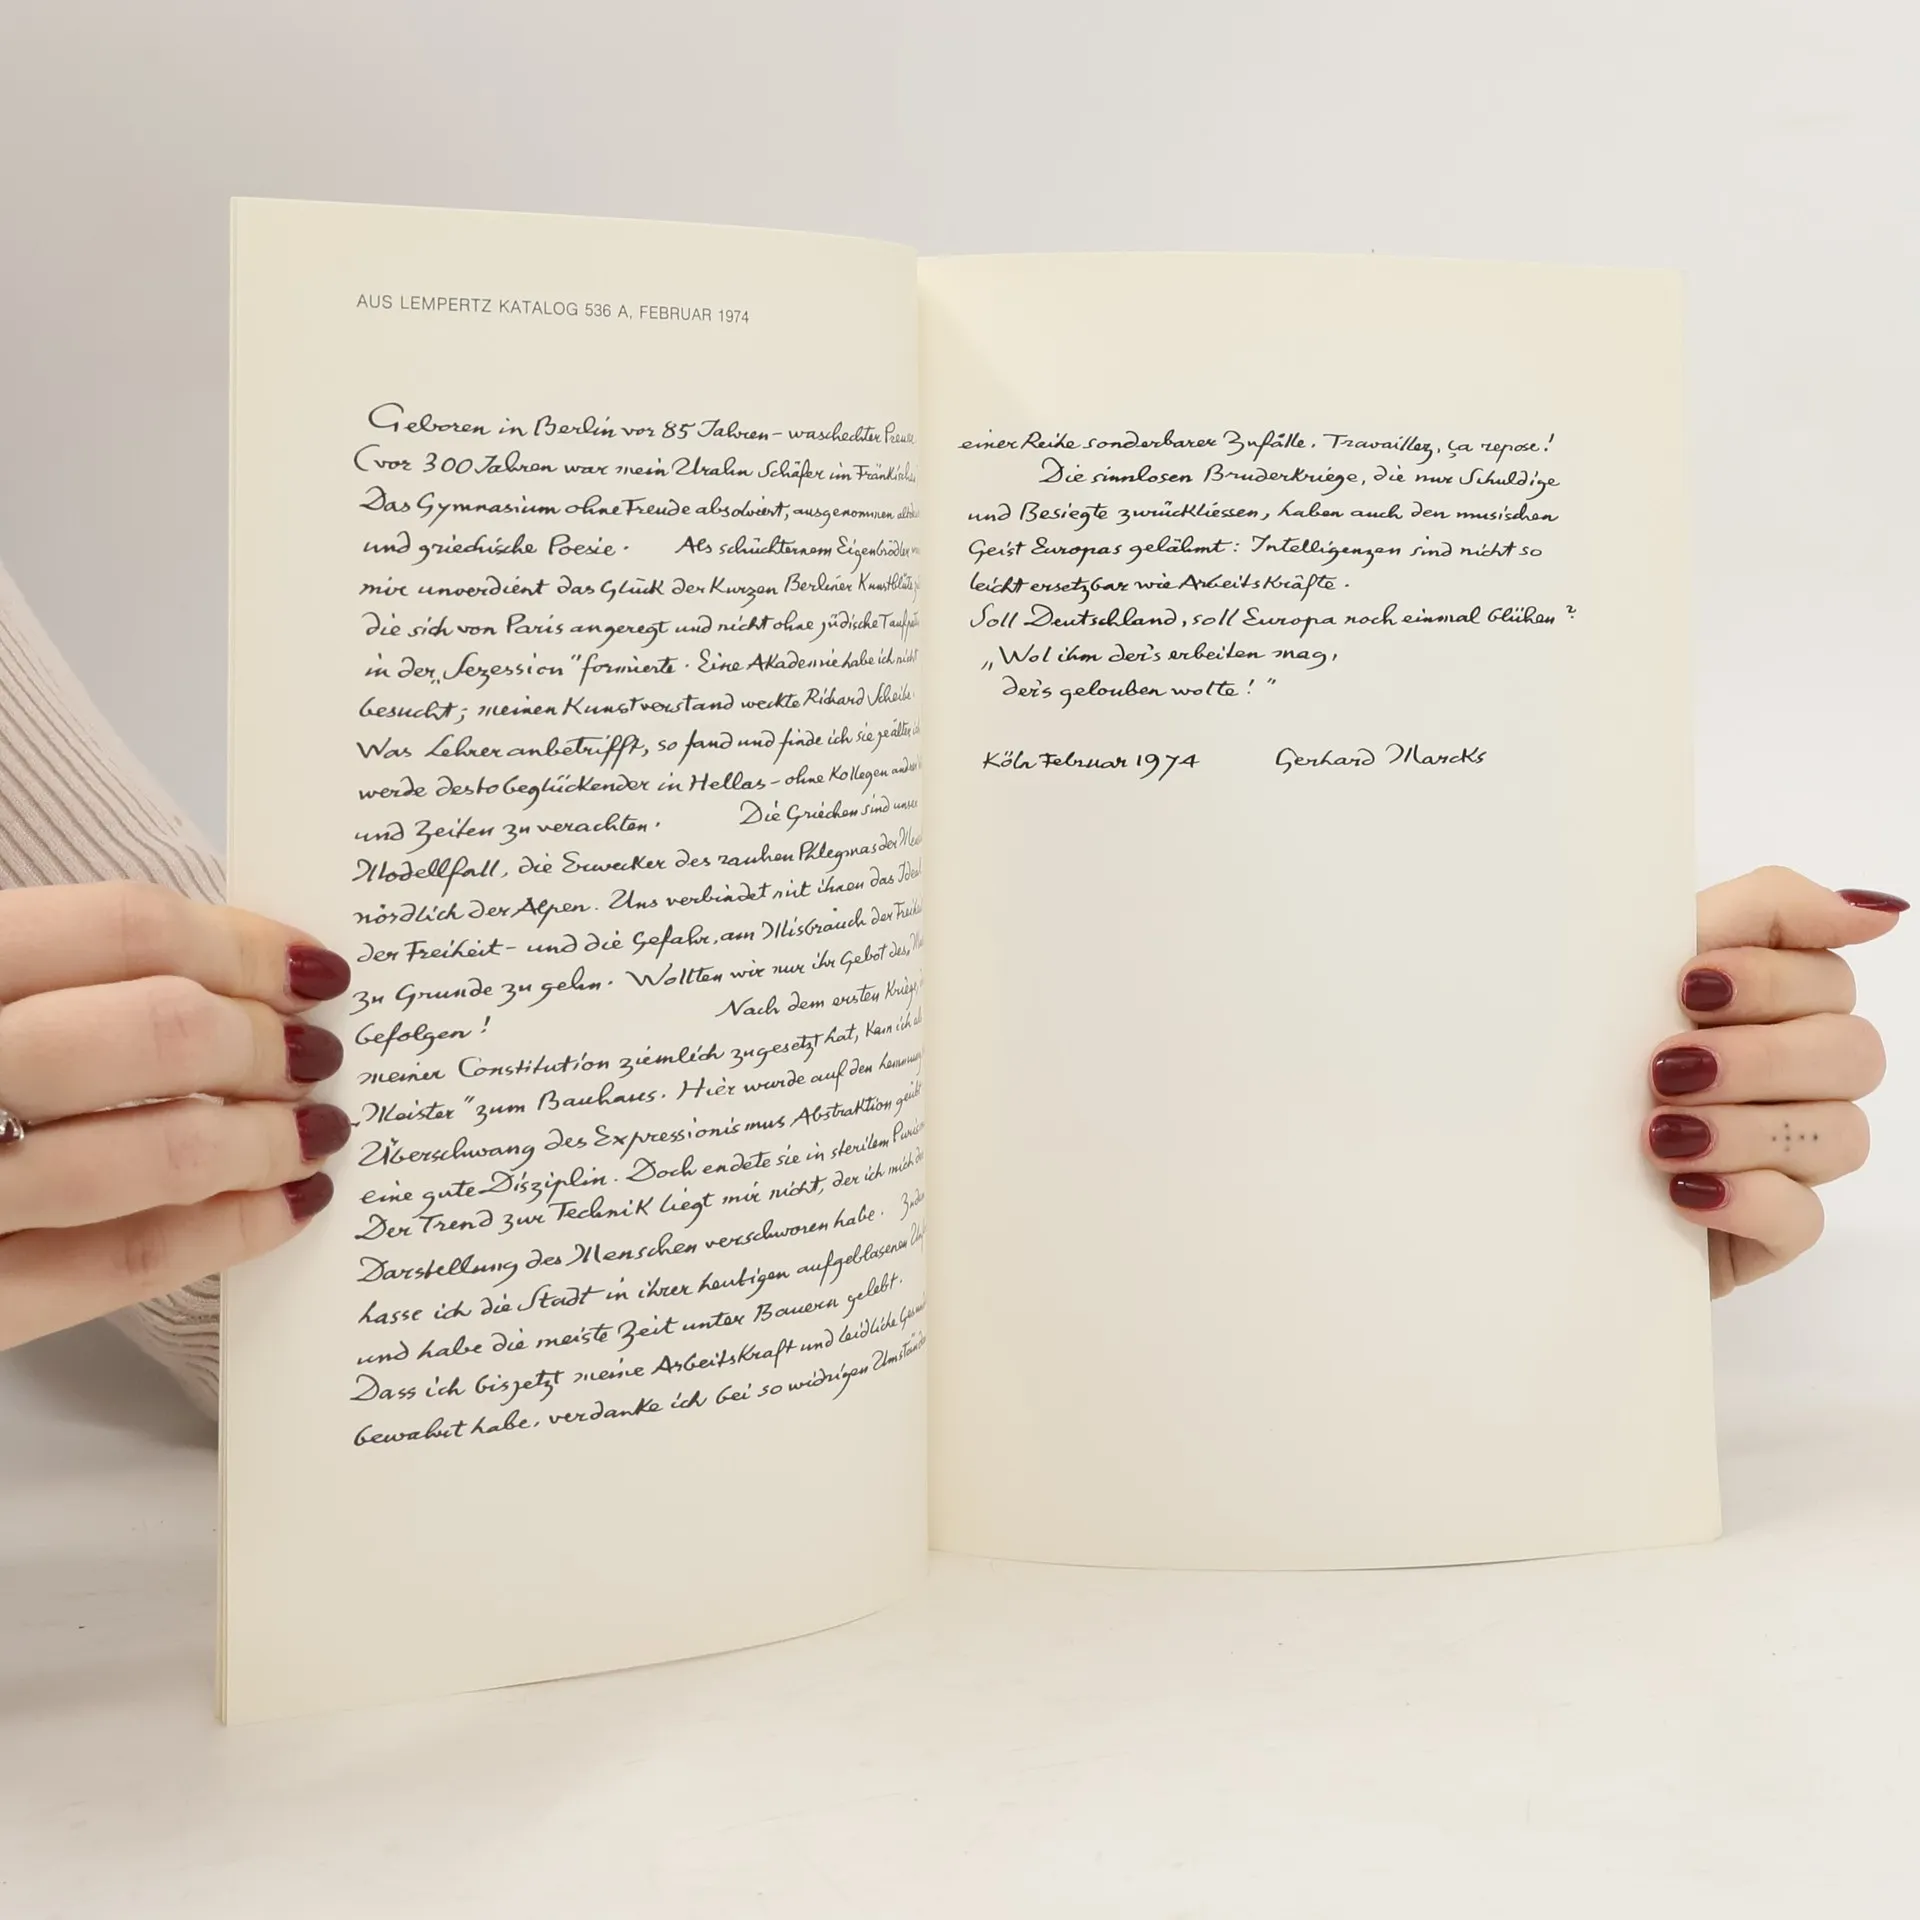 AUS LEMPERTZ KATALOG 536 A, FEBRUAR 1974
Geboren in Berlin vor 85 Jahren – waschechter
(vor 300 Jahren war mein Urahn Schäfer im
Das Gymnasium ohne Freude absolviert, ausgenommen
und griechische Poesie. Als schüchternem Eigenbrödler
mir unverdient das Glück der kurzen Berliner Kunstblüte
die sich von Paris angeregt und nicht ohne jüdische
in der „Sezession" formierte. Eine Akademie habe ich nicht
besucht; meinen Kunstverstand weckte Richard Scheibe.
Was Lehrer anbetrifft, so fand und finde ich sie je älter ich
werde desto beglückender in Hellas – ohne Kollegen
und Zeiten zu verachten. Die Griechen sind unser
Modellfall, die Erwecker des rauhen Phlegmas der
nördlich der Alpen. Uns verbindet mit ihnen das
der Freiheit – und die Gefahr, am Misbrauch der
zu Grunde zu gehn. Wollten wir nur ihr Gebot des
befolgen! Nach dem ersten Kriege,
meiner Constitution ziemlich zugesetzt hat, kam ich als
„Meister" zum Bauhaus. Hier wurde auf den
Überschwang des Expressionismus Abstraktion geübt
eine gute Disziplin. Doch endete sie in sterilem
Der Trend zur Technik liegt mir nicht, der ich mich der
Darstellung des Menschen verschworen habe. Zudem
hasse ich die Stadt in ihrer heutigen aufgeblasenen
und habe die meiste Zeit unter Bauern gelebt.
Dass ich bis jetzt meine Arbeitskraft und leidliche
bewahrt habe, verdanke ich bei so widrigen Umständen
einer Reihe sonderbarer Zufälle. Travaillez, ça repose!
Die sinnlosen Bruderkriege, die nur Schuldige
und Besiegte zurückliessen, haben auch den musischen
Geist Europas gelähmt: Intelligenzen sind nicht so
leicht ersetzbar wie Arbeitskräfte.
Soll Deutschland, soll Europa noch einmal blühen?
„Wol ihm der's erbeiten mag,
der's gelouben wolte!"
Köln Februar 1974 Gerhard Marcks